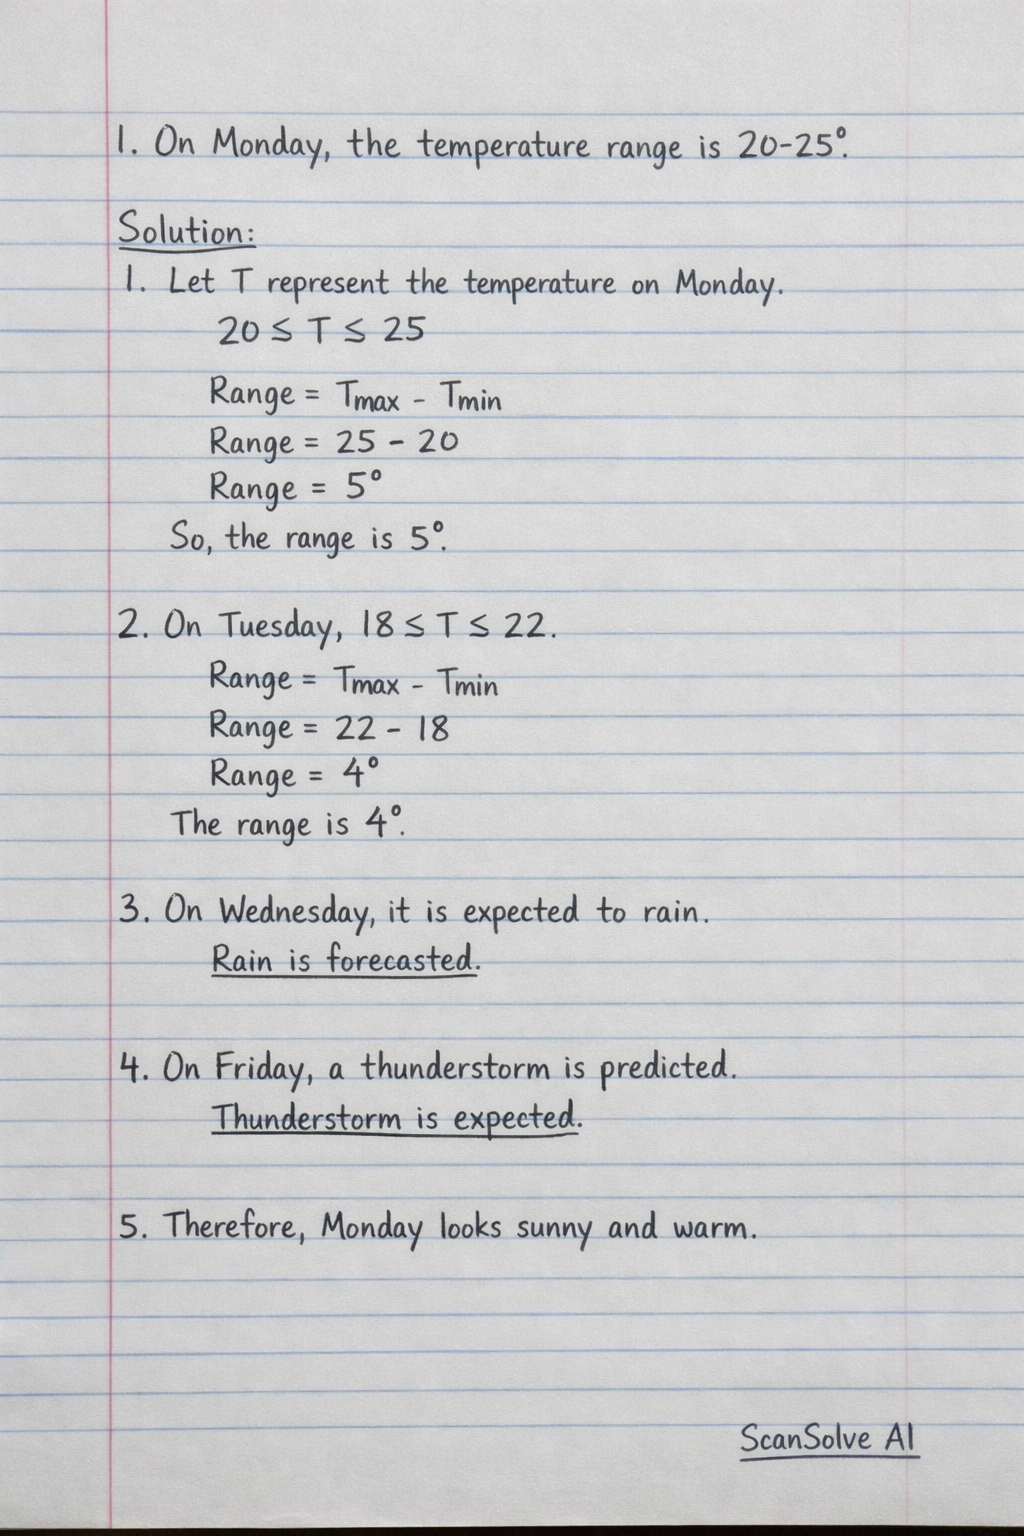 1. On Monday, the temperature range is 20-25°.
Solution:
1. Let T represent the temperature on Monday.
20 ≤ T ≤ 25
Range = Tmax - Tmin
Range = 25 - 20
Range = 5°
So, the range is 5°.
2. On Tuesday, 18 ≤ T ≤ 22.
Range = Tmax - Tmin
Range = 22 - 18
Range = 4°
The range is 4°.
3. On Wednesday, it is expected to rain.
Rain is forecasted.
4. On Friday, a thunderstorm is predicted.
Thunderstorm is expected.
5. Therefore, Monday looks sunny and warm.
ScanSolve AI